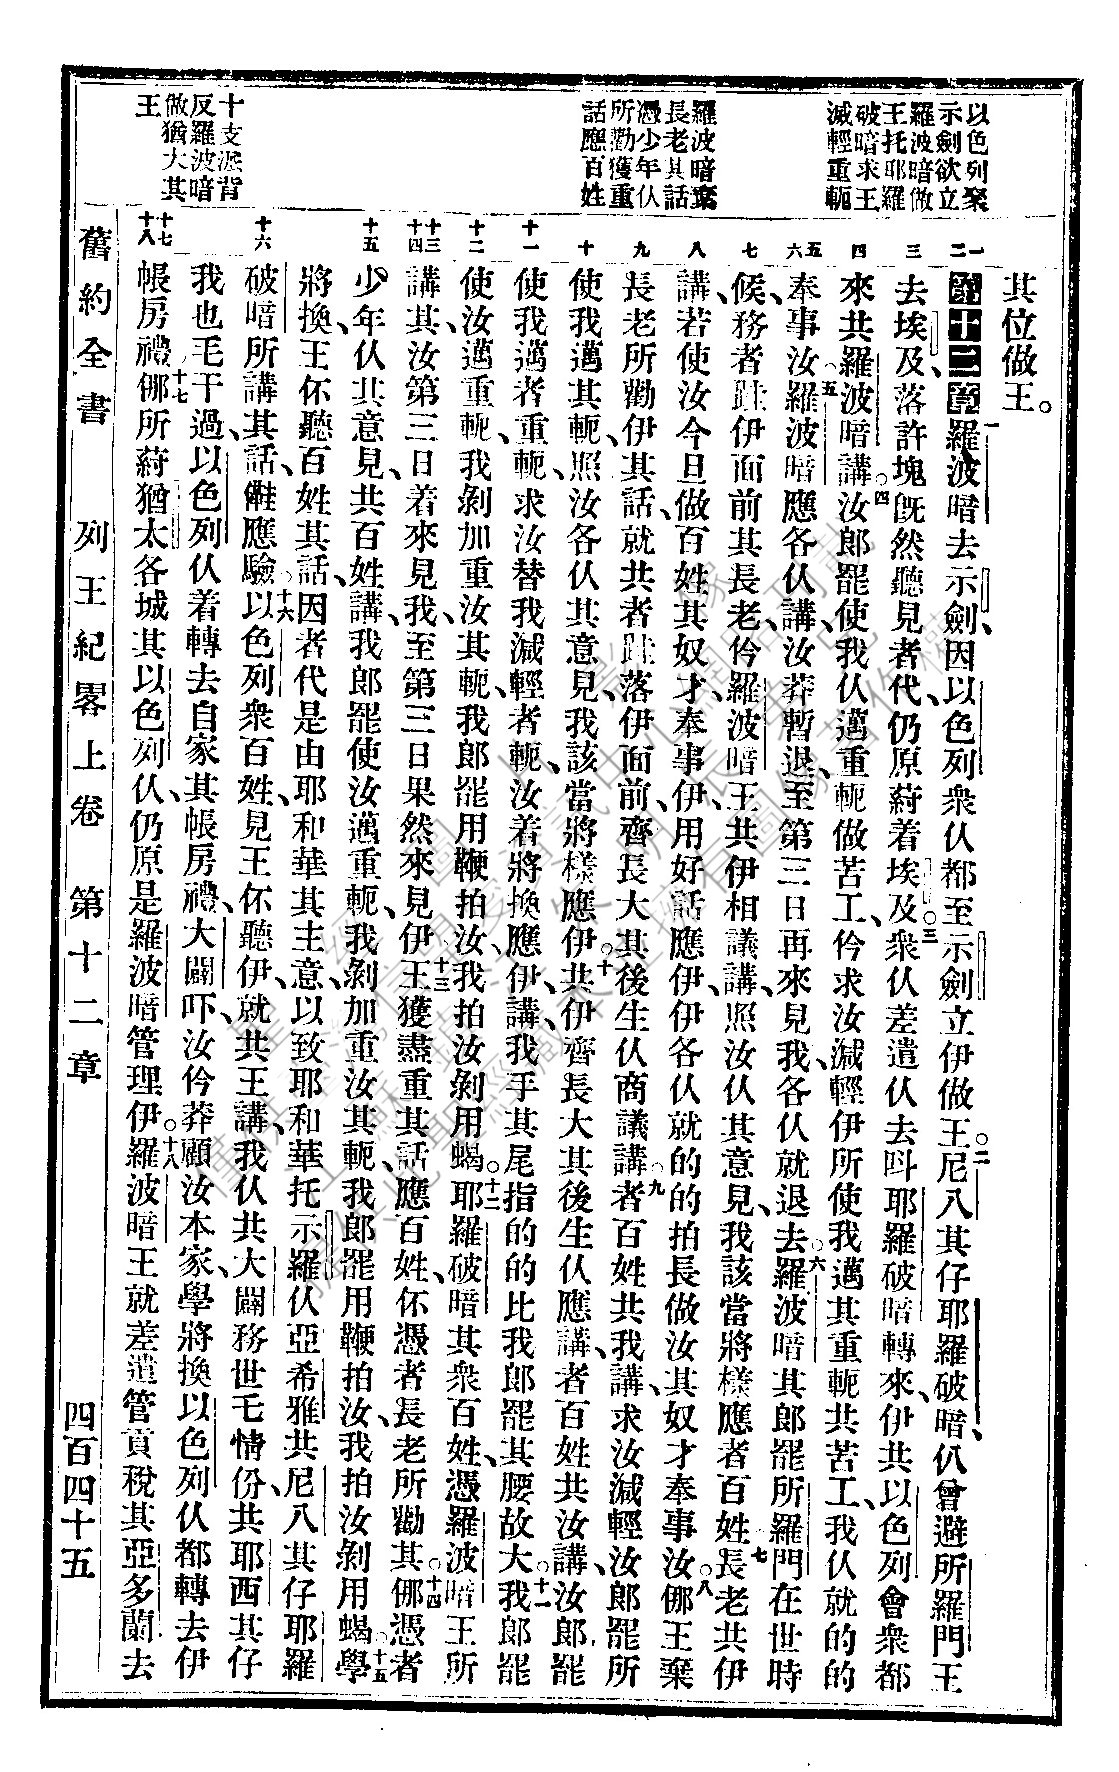 以色列聚
示劍欲立
羅波暗做
王托耶羅
破暗求王
減輕重軛
羅波暗棄
長老其話
憑少年仸
所勸獲重
話應百姓
十支派背
反羅波暗
做猶大其
王
一 二 三 四 五 六 七 八 九 十 十一 十二 十三 十四 十五 十六 十七 十八
其位做王。
第十二章羅波暗去示劍、因以色列衆仸都至示劍立伊做王。二尼八其仔耶羅破暗、仈曾避所羅門王
去埃及、落許塊旣然聽見者代、仍原蒔着埃及。三衆仸差遣仸去呌耶羅破暗轉來、伊共以色列會衆都
來共羅波暗講。四汝郎罷使我仸邁重軛做苦工、仱求汝減輕伊所使我邁其重軛共苦工、我仸就的的
奉事汝。五羅波暗應各仸講、汝莽暫退、至第三日再來見我、各仸就退去。六羅波暗其郎罷所羅門在世時
候、務者跓伊面前其長老、仱羅波暗王共伊相議講、照汝仸其意見、我該當將樣應者百姓。七長老共伊
講、若使汝今旦做百姓其奴才、奉事伊、用好話應伊、伊各仸就的的拍長做汝其奴才奉事汝。八㑚王棄
長老所勸伊其話、就共者跓落伊面前、齊長大其後生仸商議講。九者百姓共我講、求汝減輕汝郎罷所
使我邁其軛、照汝各仸其意見、我該當將樣應伊。十共伊齊長大其後生仸應講、者百姓共汝講、汝郎罷
使我邁者重軛、求汝替我減輕者軛、汝着將換應伊講、我手其尾指的的比我郎罷其腰故大。十一我郎罷
使汝邁重軛、我剝加重汝其軛、我郎罷用鞭拍汝、我拍汝剝用蝎。十二耶羅破暗其衆百姓、憑羅波暗王所
講其、汝第三日着來見我、至第三日果然來見伊。十三王獲盡重其話、應百姓、伓憑者長老所勸其。十四㑚憑者
少年仸其意見、共百姓講、我郎罷使汝邁重軛、我剝加重汝其軛、我郎罷用鞭拍汝、我拍汝剝用蝎。十五學
將換王伓聽百姓其話、因者代是由耶和華其主意、以致耶和華托示羅仸亞希雅共尼八其仔耶羅
破暗所講其話、㒰應驗。十六以色列衆百姓、見王伓聽伊、就共王講、我仸共大闢務世乇情份、共耶西其仔
我也乇干過、以色列仸着轉去自家其帳房禮、大闢吓、汝仱莽顧汝本家、學將換以色列仸都轉去伊
帳房禮。十七㑚所蒔猶太各城其以色列仸、仍原是羅波暗管理伊。十八羅波暗王就差遣管貢稅其亞多蘭去
舊約全書 列王紀畧上卷 第十二章 四百四十五